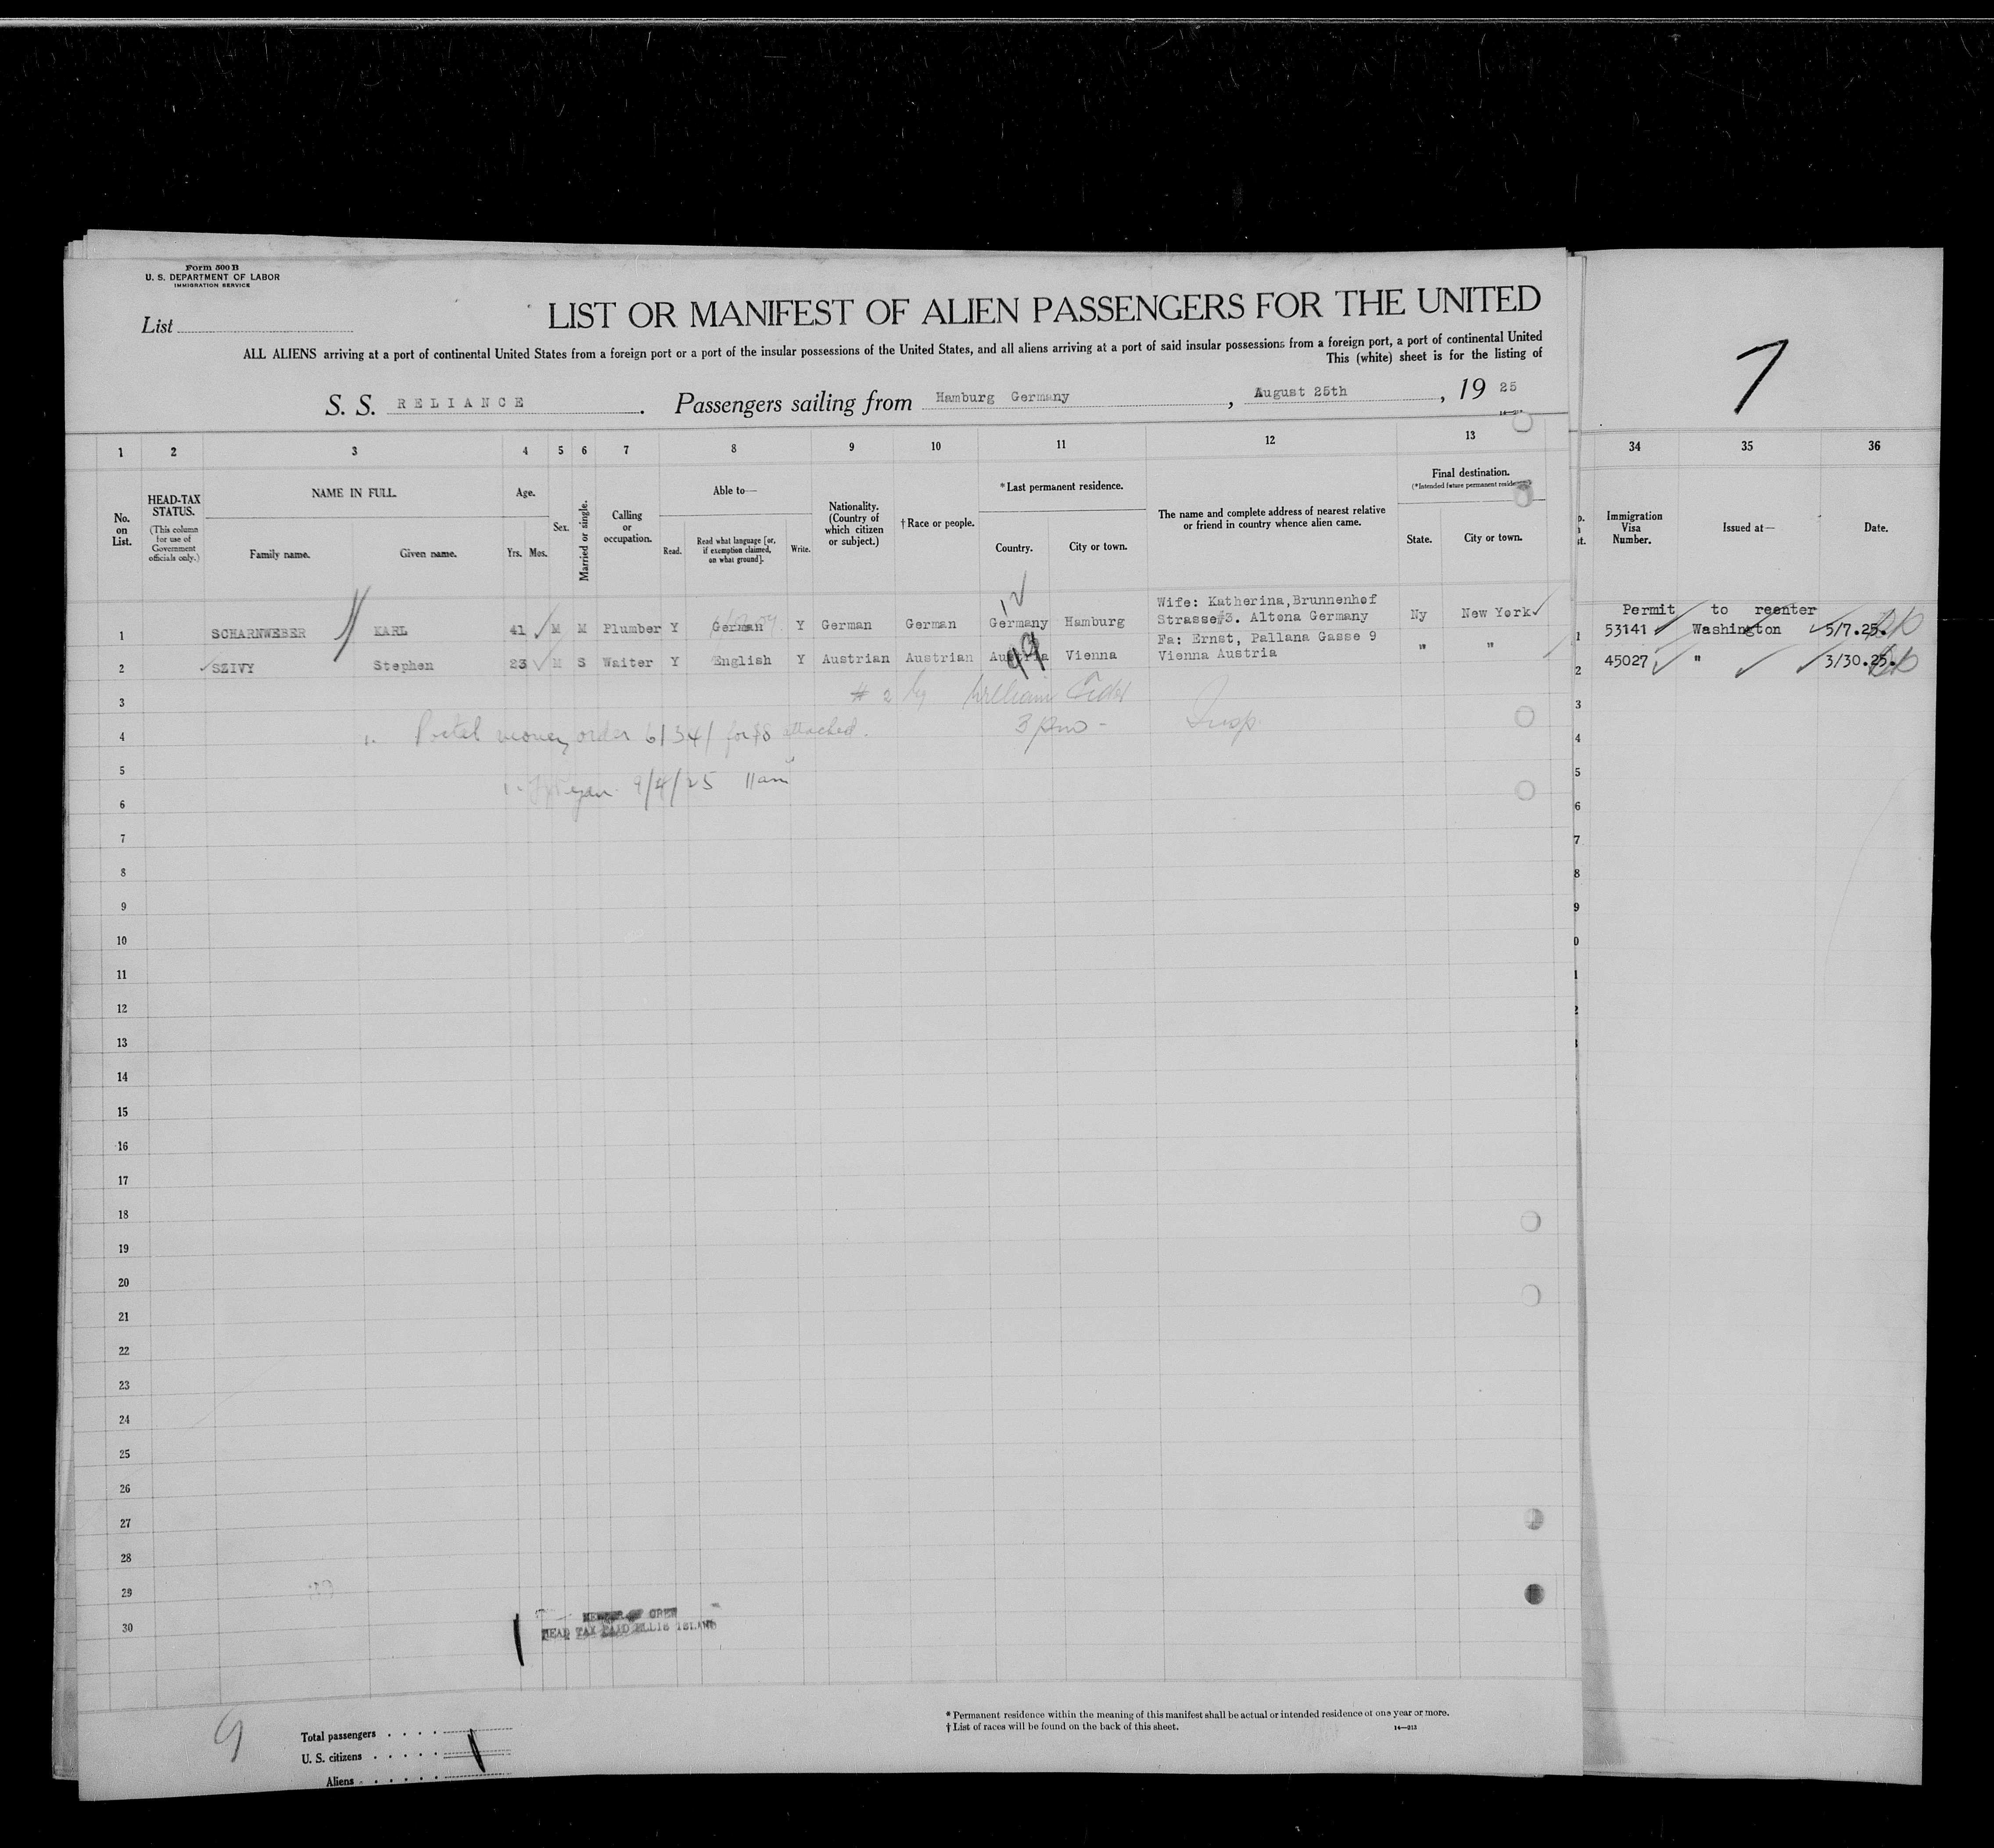 Form 500 B
U. S. DEPARTMENT OF LABOR
IMMIGRATION SERVICE
List
LIST OR MANIFEST OF ALIEN PASSENGERS FOR THE UNITED
ALL ALIENS arriving at a port of continental United States from a foreign port or a port of the insular possessions of the United States, and all aliens arriving at a port of said insular possessions from a foreign port, a port of continental United
This (white) sheet is for the listing of
S. S. RELIANCE . Passengers sailing from Hamburg Germany , August 25th , 19 25
7
1 2 3 4 5 6 7 8 9 10 11 12 13 34 35 36
No. on List.
HEAD-TAX STATUS.
(This column for use of Government officials only.)
NAME IN FULL.
Family name. Given name.
Age.
Yrs. Mos.
Sex.
Married or single.
Calling or occupation.
Able to—
Read. Read what language [or, if exemption claimed, on what ground]. Write.
Nationality. (Country of which citizen or subject.)
† Race or people.
* Last permanent residence.
Country. City or town.
The name and complete address of nearest relative or friend in country whence alien came.
Final destination.
(*Intended future permanent residence)
State. City or town.
Immigration Visa Number.
Issued at—
Date.
Permit to reenter
1 SCHARNWEBER KARL 41 M M Plumber Y German Y German German Germany Hamburg Wife: Katherina, Brunnenhof Strasse#3. Altona Germany Ny New York 53141 Washington 5/7.25.
2 SZIVY Stephen 23 M S Waiter Y English Y Austrian Austrian Austria Vienna Fa: Ernst, Pallana Gasse 9 Vienna Austria " " 45027 " 3/30.25.
3 # 2 William
4 1. Postal money order 61341 for $8 attached. 3 pm - Insp.
5
6 1. 9/4/25 11am
7
8
9
10
11
12
13
14
15
16
17
18
19
20
21
22
23
24
25
26
27
28
29
30
MEMBER OF CREW
HEAD TAX PAID ELLIS ISLAND
9
Total passengers
U. S. citizens
Aliens
* Permanent residence within the meaning of this manifest shall be actual or intended residence of one year or more.
† List of races will be found on the back of this sheet. 14—213